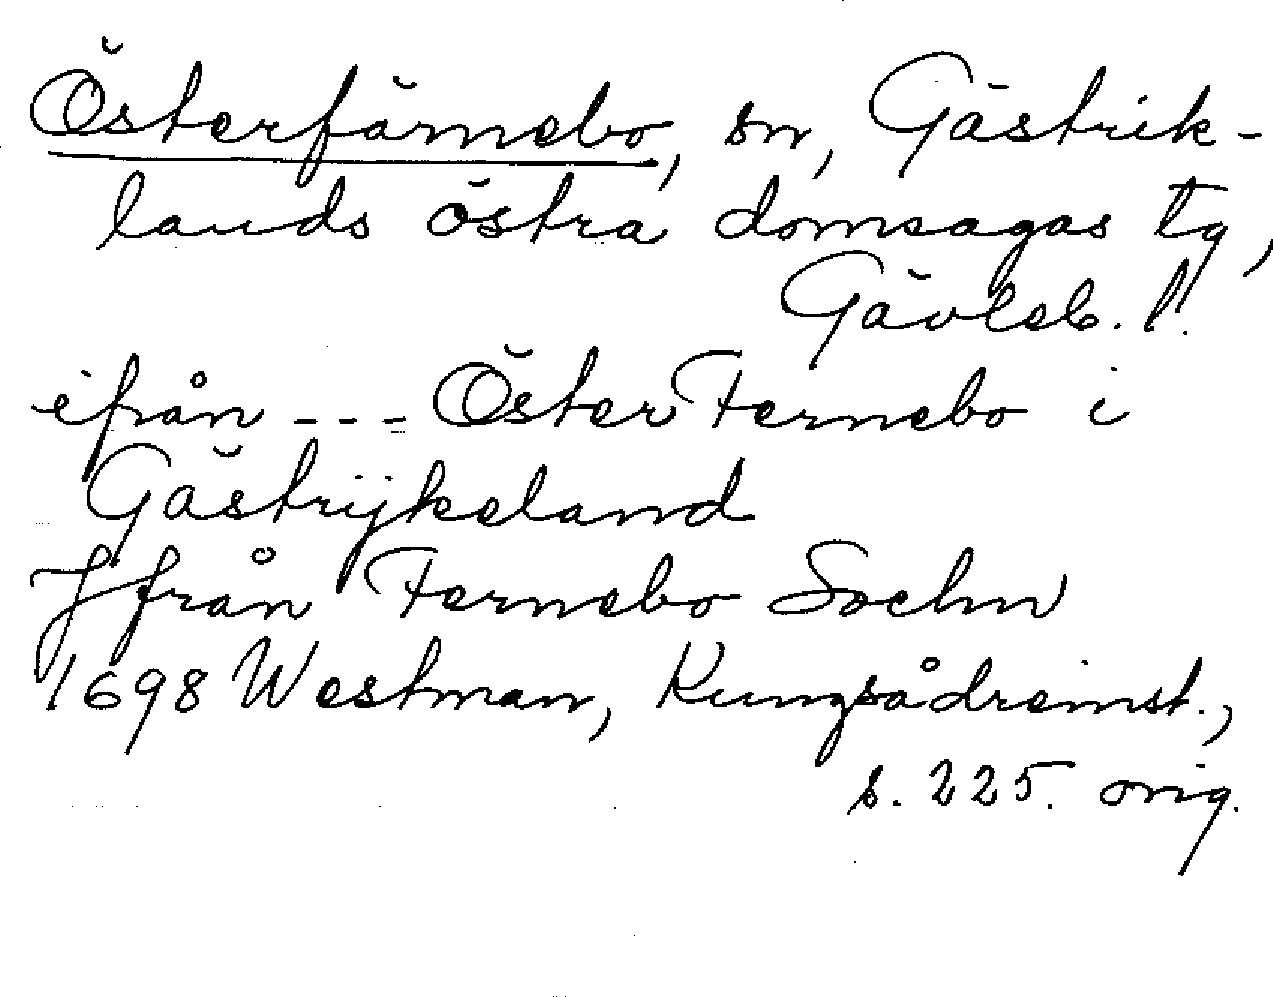 Österfärnebo, sn, Gästrik-
lands östra domsagas tg,
Gävleb. l.
ifrån --- Öster Fernebo i
Gästrijkeland
Ifrån Fernebo Sochn
1698 Westman, Kungsådreinst.,
s. 225. orig.